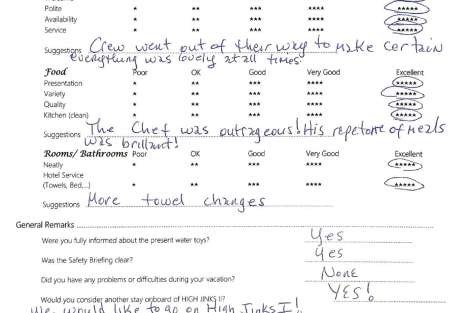 Polite * ** *** **** *****
Availability * ** *** **** *****
Service * ** *** **** *****
Suggestions Crew went out of their way to make certain
everything was lovely at all times.
Food Poor OK Good Very Good Excellent
Presentation * ** *** **** *****
Variety * ** *** **** *****
Quality * ** *** **** *****
Kitchen (clean) * ** *** **** *****
Suggestions The Chef was outrageous! His repetoire of meals
was brilliant!
Rooms/ Bathrooms Poor OK Good Very Good Excellent
Neatly * ** *** **** *****
Hotel Service
(Towels, Bed....) * ** *** **** *****
Suggestions More towel changes
General Remarks
Were you fully informed about the present water toys? Yes
Was the Safety Briefing clear? Yes
Did you have any problems or difficulties during your vacation? None
Would you consider another stay onboard of HIGH JINKS II? YES!
We would like to go on High Jinks I!